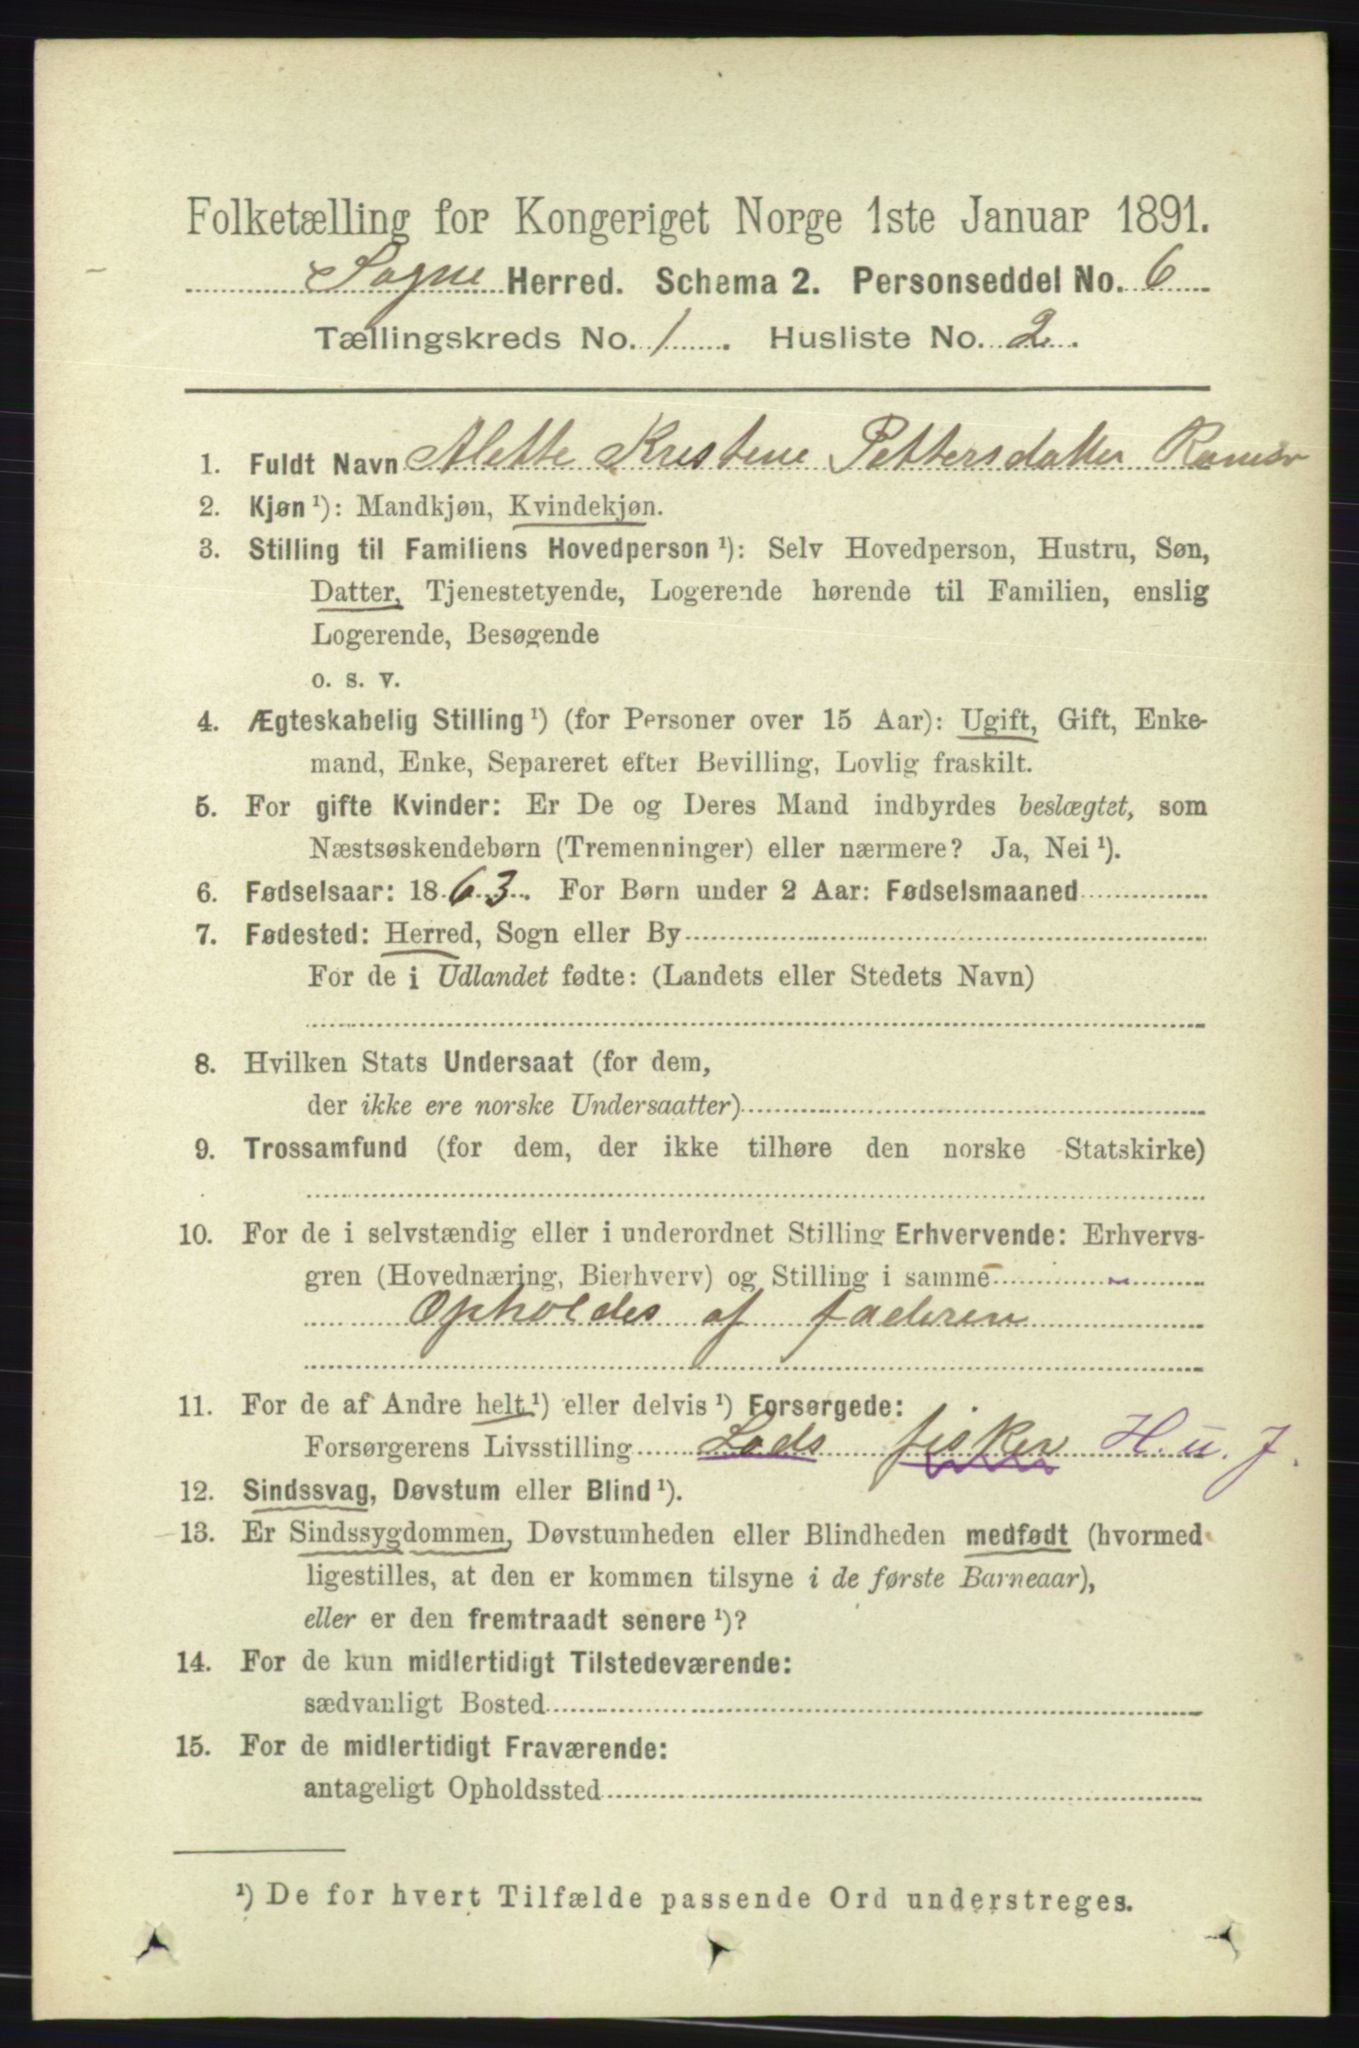 Folketælling for Kongeriget Norge 1ste Januar 1891.
Søgne Herred. Schema 2. Personseddel No. 6
Tællingskreds No. 1. Husliste No. 2.
1. Fuldt Navn Alette Kristene Pettersdatter
2. Kjøn ¹): Mandkjøn, Kvindekjøn.
3. Stilling til Familiens Hovedperson ¹): Selv Hovedperson, Hustru, Søn,
Datter, Tjenestetyende, Logerende hørende til Familien, enslig
Logerende, Besøgende
o. s. v.
4. Ægteskabelig Stilling ¹) (for Personer over 15 Aar): Ugift, Gift, Enke-
mand, Enke, Separeret efter Bevilling, Lovlig fraskilt.
5. For gifte Kvinder: Er De og Deres Mand indbyrdes beslægtet, som
Næstsøskendebørn (Tremenninger) eller nærmere? Ja, Nei ¹).
6. Fødselsaar: 1863. For Børn under 2 Aar: Fødselsmaaned
7. Fødested: Herred, Sogn eller By
For de i Udlandet fødte: (Landets eller Stedets Navn)
8. Hvilken Stats Undersaat (for dem,
der ikke ere norske Undersaatter)
9. Trossamfund (for dem, der ikke tilhøre den norske Statskirke)
10. For de i selvstændig eller i underordnet Stilling Erhvervende: Erhvervs-
gren (Hovednæring, Bierhverv) og Stilling i samme
Opholdes af faderen
11. For de af Andre helt ¹) eller delvis ¹) Forsørgede:
Forsørgerens Livsstilling Lods fisker H. u. J.
12. Sindssvag, Døvstum eller Blind ¹).
13. Er Sindssygdommen, Døvstumheden eller Blindheden medfødt (hvormed
ligestilles, at den er kommen tilsyne i de første Barneaar),
eller er den fremtraadt senere ¹)?
14. For de kun midlertidigt Tilstedeværende:
sædvanligt Bosted
15. For de midlertidigt Fraværende:
antageligt Opholdssted
¹) De for hvert Tilfælde passende Ord understreges.